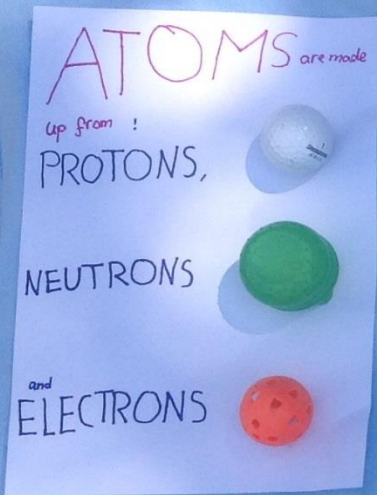 ATOMS are made
up from !
PROTONS,
NEUTRONS
and
ELECTRONS